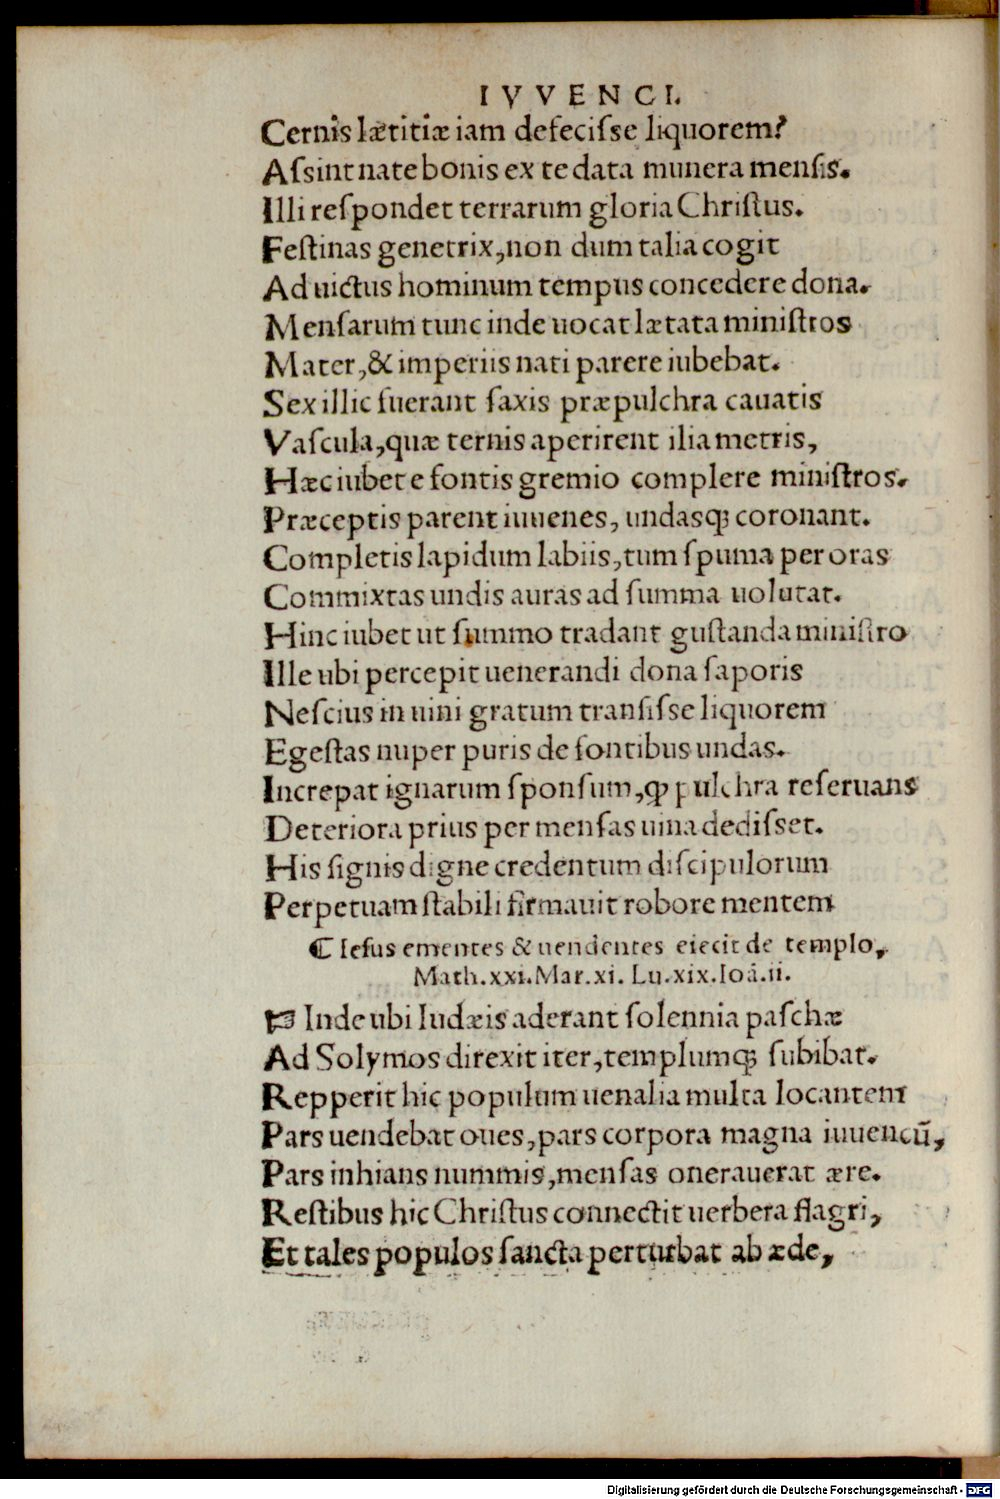 IVVENCI.
Cernis lætitiæ iam defeciſse liquorem?
Aſsint nate bonis ex te data munera menſis.
Illi reſpondet terrarum gloria Chriſtus.
Feſtinas genetrix, non dum talia cogit
Ad uictus hominum tempus concedere dona.
Menſarum tunc inde uocat lætata miniſtros
Mater, & imperiis nati parere iubebat.
Sex illic fuerant ſaxis præpulchra cauatis
Vaſcula, quæ ternis aperirent ilia metris,
Hæc iubet e fontis gremio complere miniſtros.
Præceptis parent iuuenes, undasq; coronant.
Completis lapidum labiis, tum ſpuma per oras
Commixtas undis auras ad ſumma uolutat.
Hinc iubet ut ſummo tradant guſtanda miniſtro
Ille ubi percepit uenerandi dona ſaporis
Neſcius in uini gratum tranſiſse liquorem
Egeſtas nuper puris de fontibus undas.
Increpat ignarum ſponſum, ꝙ pulchra reſeruans
Deteriora prius per menſas uina dediſset.
His ſignis digne credentum diſcipulorum
Perpetuam ſtabili firmauit robore mentem
⸿ Ieſus ementes & uendentes eiecit de templo,
Math.xxi.Mar.xi. Lu.xix.Ioā.ii.
☞ Inde ubi Iudæis aderant ſolennia paſchæ
Ad Solymos direxit iter, templumq; ſubibat.
Repperit hic populum uenalia multa locantem
Pars uendebat oues, pars corpora magna iuuencū,
Pars inhians nummis, menſas onerauerat ære.
Reſtibus hic Chriſtus connectit uerbera flagri,
Et tales populos ſancta perturbat ab æde,
Digitalisierung gefördert durch die Deutsche Forschungsgemeinschaft - DFG